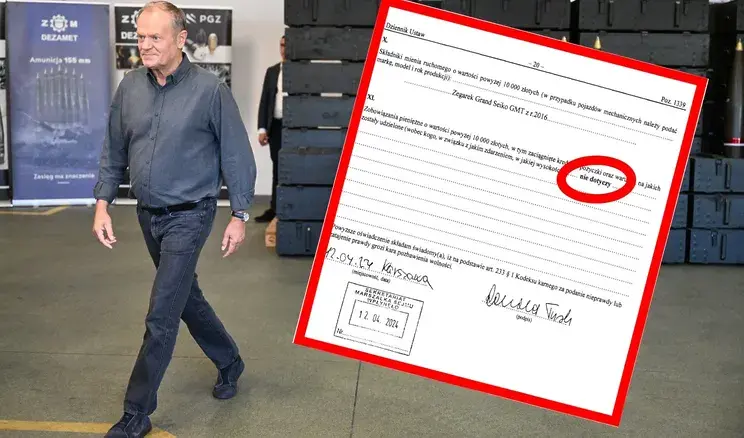 Z M
DEZAMET
Amunicja 155 mm
Zasięg ma znaczenie
Z M
DEZAMET
PGZ
Dziennik Ustaw
– 20 –
Poz. 1339
X.
Składniki mienia ruchomego o wartości powyżej 10 000 złotych (w przypadku pojazdów mechanicznych należy podać
markę, model i rok produkcji):
Zegarek Grand Seiko GMT z r.2016
XI.
Zobowiązania pieniężne o wartości powyżej 10 000 złotych, w tym zaciągnięte kredyty pożyczki oraz na jakich
zostały udzielone (wobec kogo, w związku z jakim zdarzeniem, w jakiej wysokości
nie dotyczy
Powyższe oświadczenie składam świadomy(a), iż na podstawie art. 233 § 1 Kodeksu karnego za podanie nieprawdy lub
zatajenie prawdy grozi kara pozbawienia wolności.
12.04.24 Warszawa
(miejscowość, data)
Donald Tusk
(podpis)
SEKRETARIAT
MARSZAŁKA SEJMU
WPŁYNĘŁO
12. 04. 2024
Nr